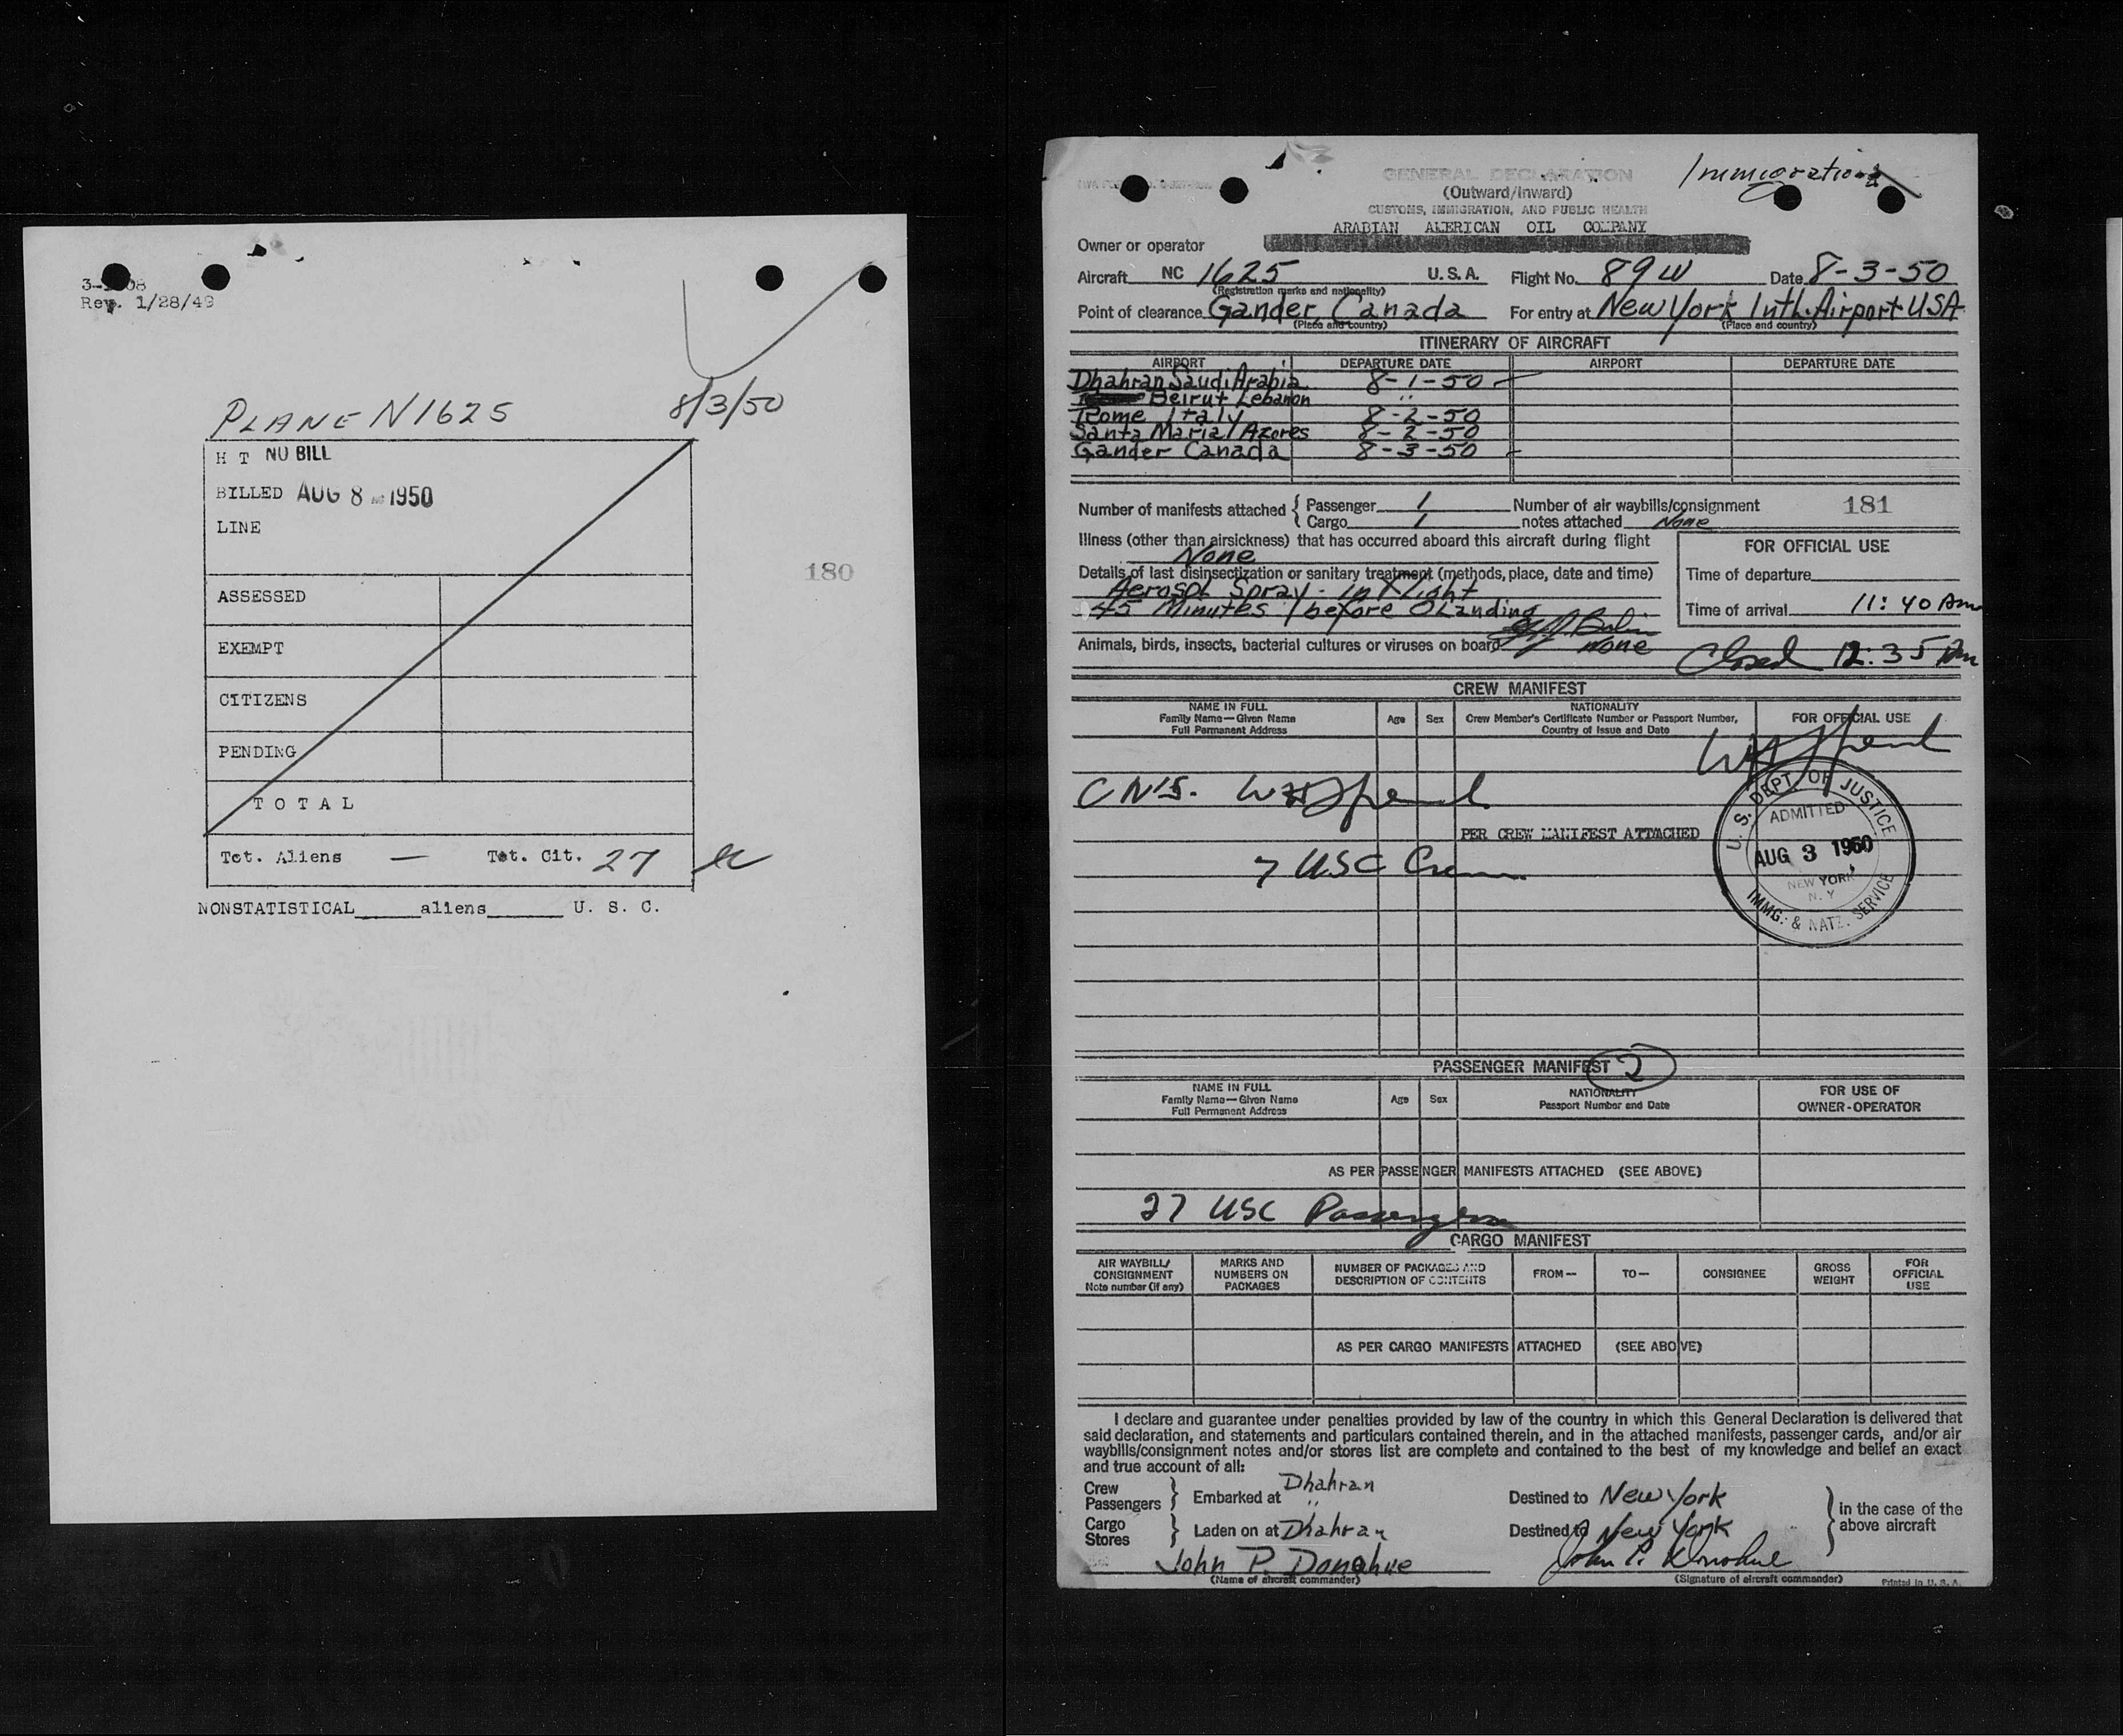 Rev. 1/28/49
PLANE N1625 8/3/50
H T NO BILL
BILLED AUG 8 1950
LINE
180
ASSESSED
EXEMPT
CITIZENS
PENDING
TOTAL
Tot. Aliens — Tot. Cit. 27
NONSTATISTICAL aliens U. S. C.
Immigration
GENERAL DECLARATION
(Outward/Inward)
CUSTOMS, IMMIGRATION, AND PUBLIC HEALTH
ARABIAN AMERICAN OIL COMPANY
Owner or operator
Aircraft NC 1625 U. S. A. Flight No. 89W Date 8-3-50
(Registration marks and nationality)
Point of clearance Gander, Canada For entry at New York Intl. Airport USA
(Place and country) (Place and country)
ITINERARY OF AIRCRAFT
AIRPORT DEPARTURE DATE AIRPORT DEPARTURE DATE
Dhahran Saudi Arabia 8-1-50
Beirut Lebanon "
Rome Italy 8-2-50
Santa Maria Azores 8-2-50
Gander Canada 8-3-50
Number of manifests attached { Passenger 1 Number of air waybills/consignment 181
Cargo 1 notes attached None
Illness (other than airsickness) that has occurred aboard this aircraft during flight
None
FOR OFFICIAL USE
Details of last disinsectization or sanitary treatment (methods, place, date and time)
Time of departure
Aerosol Spray - in flight
45 Minutes before Landing
Time of arrival 11:40 Am
Animals, birds, insects, bacterial cultures or viruses on board None
Closed 12:35 Pm
CREW MANIFEST
NAME IN FULL
Family Name—Given Name
Full Permanent Address
Age Sex
NATIONALITY
Crew Member's Certificate Number or Passport Number,
Country of Issue and Date
FOR OFFICIAL USE
PER CREW MANIFEST ATTACHED
7 USC Crew
U. S. DEPT. OF JUSTICE
ADMITTED
AUG 3 1950
NEW YORK
N. Y.
IMMG. & NATZ. SERVICE
PASSENGER MANIFEST 2
NAME IN FULL
Family Name—Given Name
Full Permanent Address
Age Sex
NATIONALITY
Passport Number and Date
FOR USE OF
OWNER-OPERATOR
AS PER PASSENGER MANIFESTS ATTACHED (SEE ABOVE)
27 USC Passengers
CARGO MANIFEST
AIR WAYBILL/
CONSIGNMENT
Note number (if any)
MARKS AND
NUMBERS ON
PACKAGES
NUMBER OF PACKAGES AND
DESCRIPTION OF CONTENTS
FROM—
TO—
CONSIGNEE
GROSS
WEIGHT
FOR
OFFICIAL
USE
AS PER CARGO MANIFESTS ATTACHED (SEE ABOVE)
I declare and guarantee under penalties provided by law of the country in which this General Declaration is delivered that
said declaration, and statements and particulars contained therein, and in the attached manifests, passenger cards, and/or air
waybills/consignment notes and/or stores list are complete and contained to the best of my knowledge and belief an exact
and true account of all:
Crew
Passengers } Embarked at Dhahran Destined to New York
"
Cargo
Stores } Laden on at Dhahran Destined to New York
} in the case of the
above aircraft
John P. Donahue John P. Donahue
(Name of aircraft commander) (Signature of aircraft commander)
Printed in U. S. A.